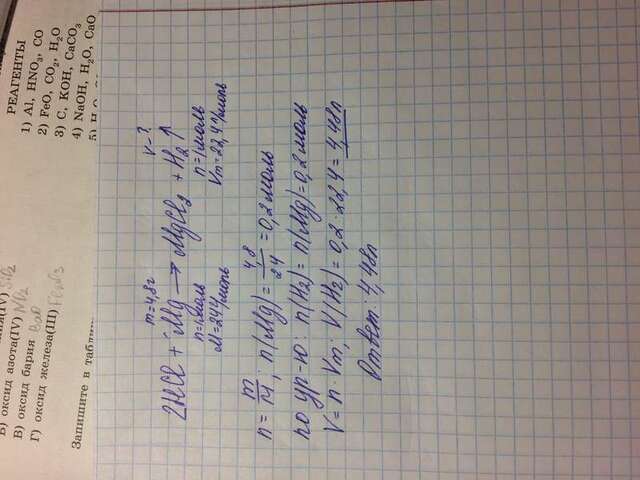 РЕАГЕНТЫ
1) Al, HNO₃, CO
2) FeO, CO₂, H₂O
3) C, KOH, CaCO₃
4) NaOH, H₂O, CaO
5)
SiO₂
Б) оксид азота(IV) NO₂
В) оксид бария BaO
Г) оксид железа(III) Fe₂O₃
Запишите в таблиц
m=4,8г V-?
2HCl + Mg → MgCl₂ + H₂↑
n=1моль n=1моль
M=24г/моль Vm=22,4л/моль
n = m/M; n(Mg) = 4,8/24 = 0,2 моль
по ур-ю: n(H₂) = n(Mg) = 0,2 моль
V = n · Vm; V(H₂) = 0,2 · 22,4 = 4,48л
Ответ: 4,48л